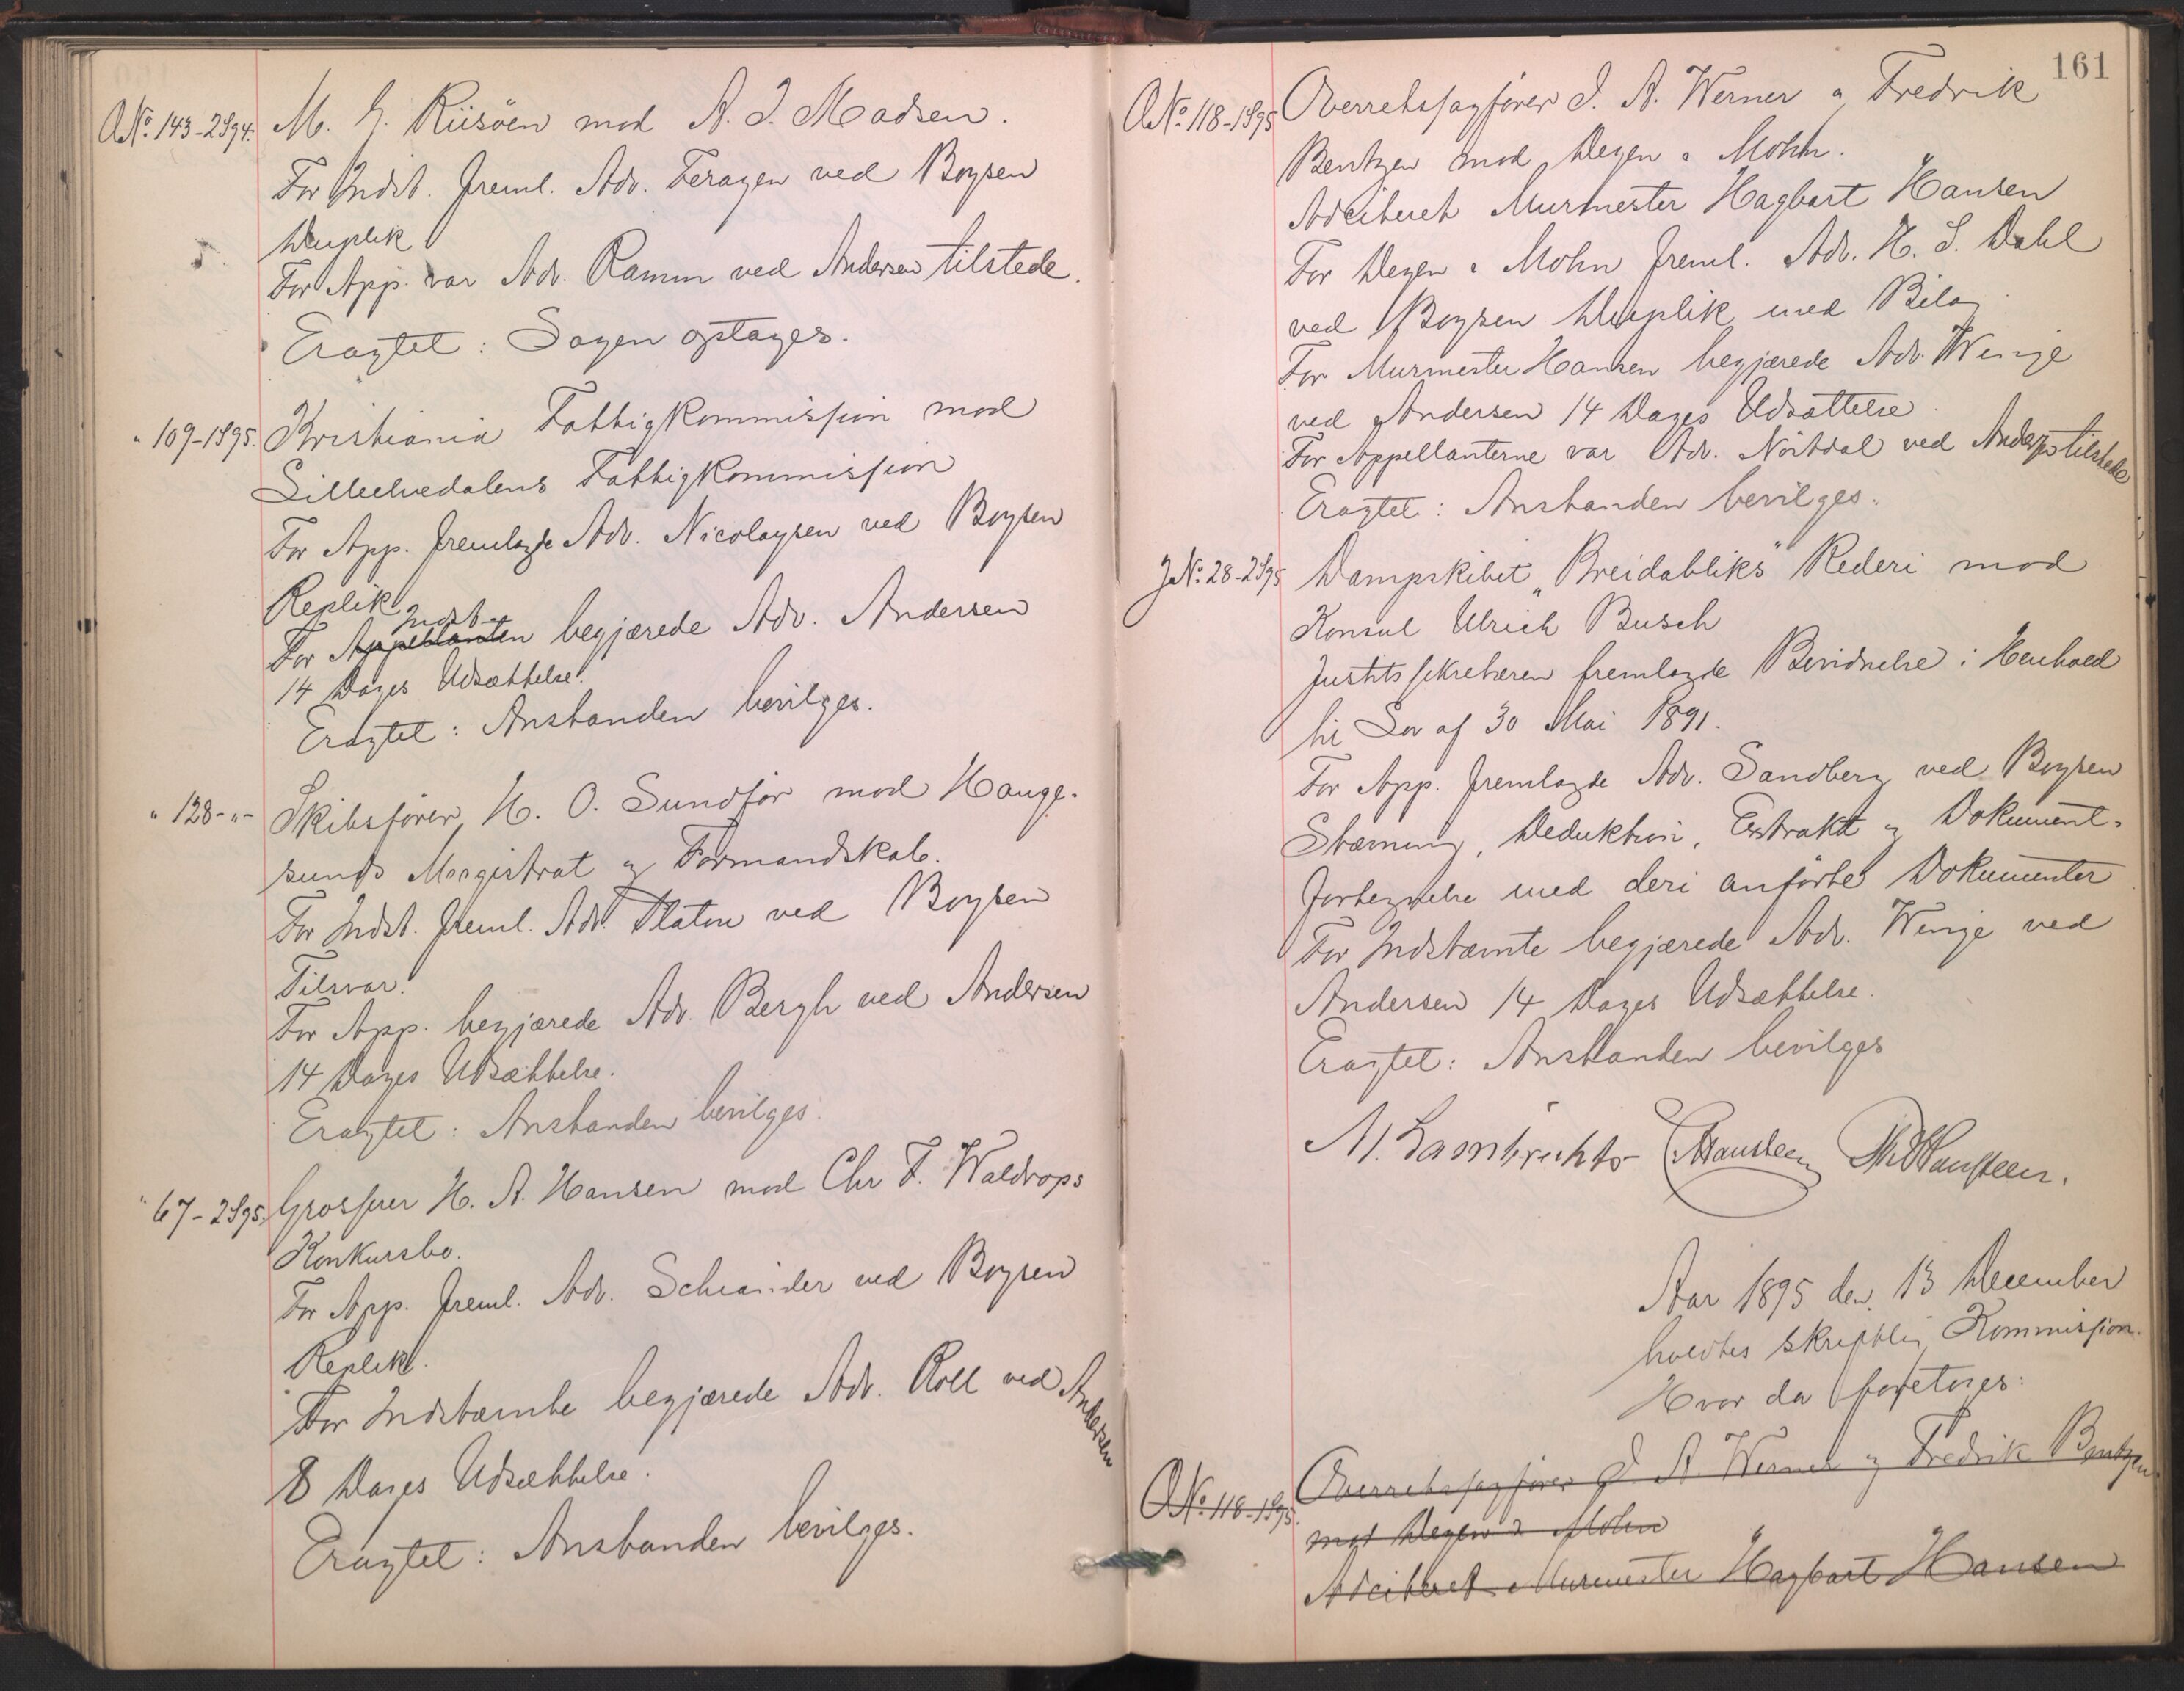 No. 143-2S94. M. G. Riisöen mod A. J. Madsen.
For Indst. freml. Adv. Feragen ved Boysen
Duplik
For App. var Adv. Ramm ved Andersen tilstede.
Eragtet: Sagen optages.
" 109-1S95. Kristiania Fattigkommission mod
Lillehvedalens Fattigkommission
For App. fremlagde Adv. Nicolaysen ved Boysen
Replik
For Appellanten Indst. begjærede Adv. Andersen
14 Dages Udsættelse.
Eragtet: Anstanden bevilges.
" 128-"- Skibsfører H. O. Sundför mod Hauge-
sunds Magistrat og Formandskab.
For Indst. freml. Adv. Platou ved Boysen
Tilsvar.
For App. begjærede Adv. Bergh ved Andersen
14 Dages Udsættelse.
Eragtet: Anstanden bevilges.
" 67-2S95. Grosserer H. A. Hansen mod Chr F. Waldrops
Konkursbo.
For App. freml. Adv. Schiander ved Boysen
Replik.
For Indstævnte begjærede Adv. Roll ved Andersen
8 Dages Udsættelse.
Eragtet: Anstanden bevilges.
161
No. 118-1S95 Overretssagfører J. A. Werner og Fredrik
Bentzen mod Degen & Mohn.
Adciteret Murmester Hagbart Hansen
For Degen & Mohn freml. Adv. H. S. Dahl
ved Boysen Duplik med Bilag
For Murmester Hansen begjærede Adv. Winge
ved Andersen 14 Dages Udsættelse.
For Appellanterne var Adv. Nörtdal ved Andersen tilstede
Eragtet: Anstanden bevilges.
J. No. 28-2S95 Dampskibet "Breidabliks" Rederi mod
Konsul Ulrich Busch
Justitssekretæren fremlagde Bevidnelse i Henhold
til Lov af 30 Mai 1891.
For App. fremlagde Adv. Sandberg ved Boysen
Stævning, Deduktion, Extrakt og Dokument-
fortegnelse med deri anförte Dokumenter
For Indstævnte begjærede Adv. Winge ved
Andersen 14 Dages Udsættelse.
Eragtet: Anstanden bevilges
M. Lambrechts Hansteen Hansteen.
Aar 1895 den 13 December
holdtes skriftlig Kommission.
Hvor da foretoges:
No. 118-1S95. Overretssagfører J. A. Werner og Fredrik Bentzen
mod Degen & Mohn
Adciteret Murmester Hagbart Hansen